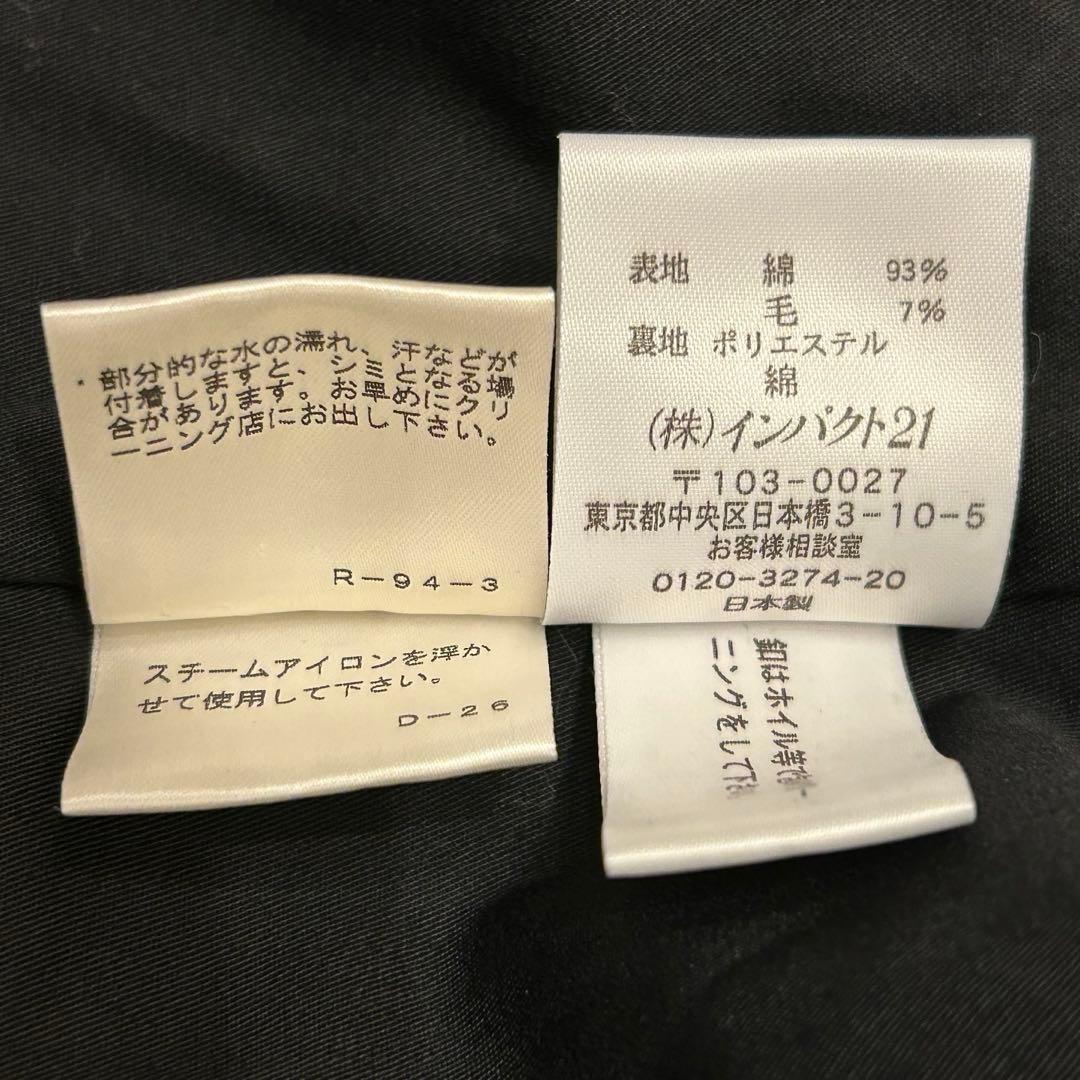 部分的な水の濡れ、汗などが
付着しますと、シミとなる場
合があります。お早めにクリ
ーニング店にお出し下さい。
R-94-3
スチームアイロンを浮か
せて使用して下さい。
D-26
表地 綿 93%
毛 7%
裏地 ポリエステル
綿
(株)インパクト21
〒103-0027
東京都中央区日本橋3-10-5
お客様相談室
0120-3274-20
日本製
釦はホイル等で
ニングをして下さ